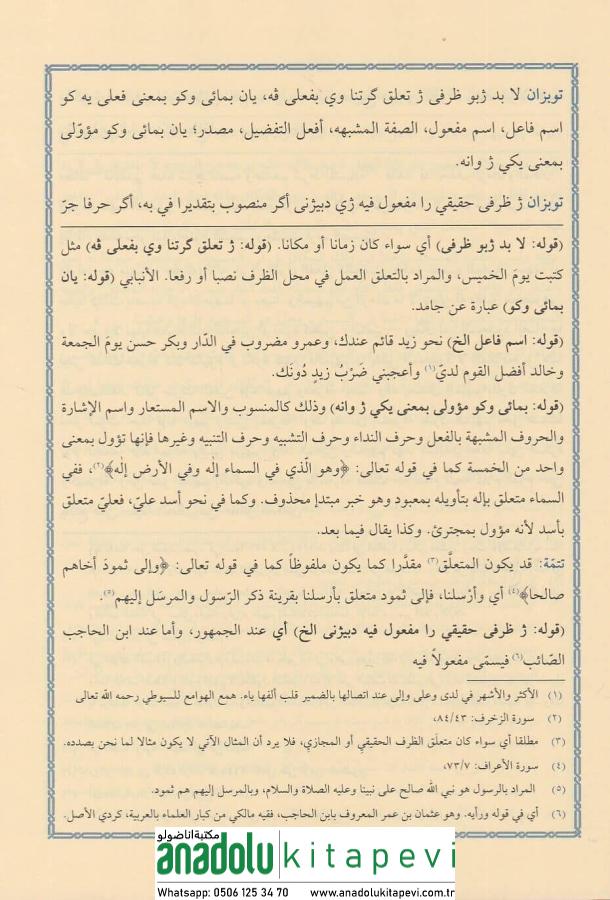 توبزان لا بد ژبو ظرفى ژ تعلق گرتنا وي بفعلى ڤه، يان بمائى وكو بمعنى فعلى يه كو
اسم فاعل، اسم مفعول، الصفة المشبهه، أفعل التفضيل، مصدر؛ يان بمائى وكو مؤوّلى
بمعنى يكي ژ وانه.
توبزان ژ ظرفى حقيقي را مفعول فيه ژي دبيژنى أگر منصوب بتقديرا في به، أگر حرفا جرّ
(قوله: لا بد ژبو ظرفى) أي سواء كان زمانا أو مكانا. (قوله: ژ تعلق گرتنا وي بفعلى ڤه) مثل
كتبت يومَ الخميس، والمراد بالتعلق العمل في محل الظرف نصبا أو رفعا. الأنبابي (قوله: يان
بمائى وكو) عبارة عن جامد.
(قوله: اسم فاعل الخ) نحو زيد قائم عندك، وعمرو مضروب في الدّار وبكر حسن يومَ الجمعة
وخالد أفضل القوم لديّ(١) وأعجبني ضَرْبُ زيدٍ دُونَك.
(قوله: بمائى وكو مؤولى بمعنى يكي ژ وانه) وذلك كالمنسوب والاسم المستعار واسم الإشارة
والحروف المشبهة بالفعل وحرف النداء وحرف التشبيه وحرف التنبيه وغيرها فإنها تؤول بمعنى
واحد من الخمسة كما في قوله تعالى: ﴿وهو الّذي في السماء إلٰه وفي الأرض إلٰه﴾(٢)، ففي
السماء متعلق بإله بتأويله بمعبود وهو خبر مبتدإ محذوف. وكما في نحو أسد عليّ، فعليّ متعلق
بأسد لأنه مؤول بمجترئ. وكذا يقال فيما بعد.
تتمّة: قد يكون المتعلَّق(٣) مقدَّرا كما يكون ملفوظاً كما في قوله تعالى: ﴿وإلى ثمودَ أخاهم
صالحا﴾(٤) أي وأرْسلنا، فإلى ثمود متعلق بأرسلنا بقرينة ذكر الرّسول والمرسَل إليهم(٥).
(قوله: ژ ظرفى حقيقي را مفعول فيه دبيژنى الخ) أي عند الجمهور، وأما عند ابن الحاجب
الصّائب(٦) فيسمّى مفعولاً فيه
(١) الأكثر والأشهر في لدى وعلى وإلى عند اتصالها بالضمير قلب ألفها ياء. همع الهوامع للسيوطي رحمه الله تعالى
(٢) سورة الزخرف: ٨٤/٤٣،
(٣) مطلقا أي سواء كان متعلَق الظرف الحقيقي أو المجازي، فلا يرد أن المثال الآتي لا يكون مثالا لما نحن بصدده.
(٤) سورة الأعراف: ٧٣/٧،
(٥) المراد بالرسول هو نبي الله صالح على نبينا وعليه الصلاة والسلام، وبالمرسل إليهم هم ثمود.
(٦) أي في قوله ورأيه. وهو عثمان بن عمر المعروف بابن الحاجب، فقيه مالكي من كبار العلماء بالعربية، كردي الأصل.
مكتبة اناضولو
anadolu kitapevi
Whatsapp: 0506 125 34 70 www.anadolukitapevi.com.tr